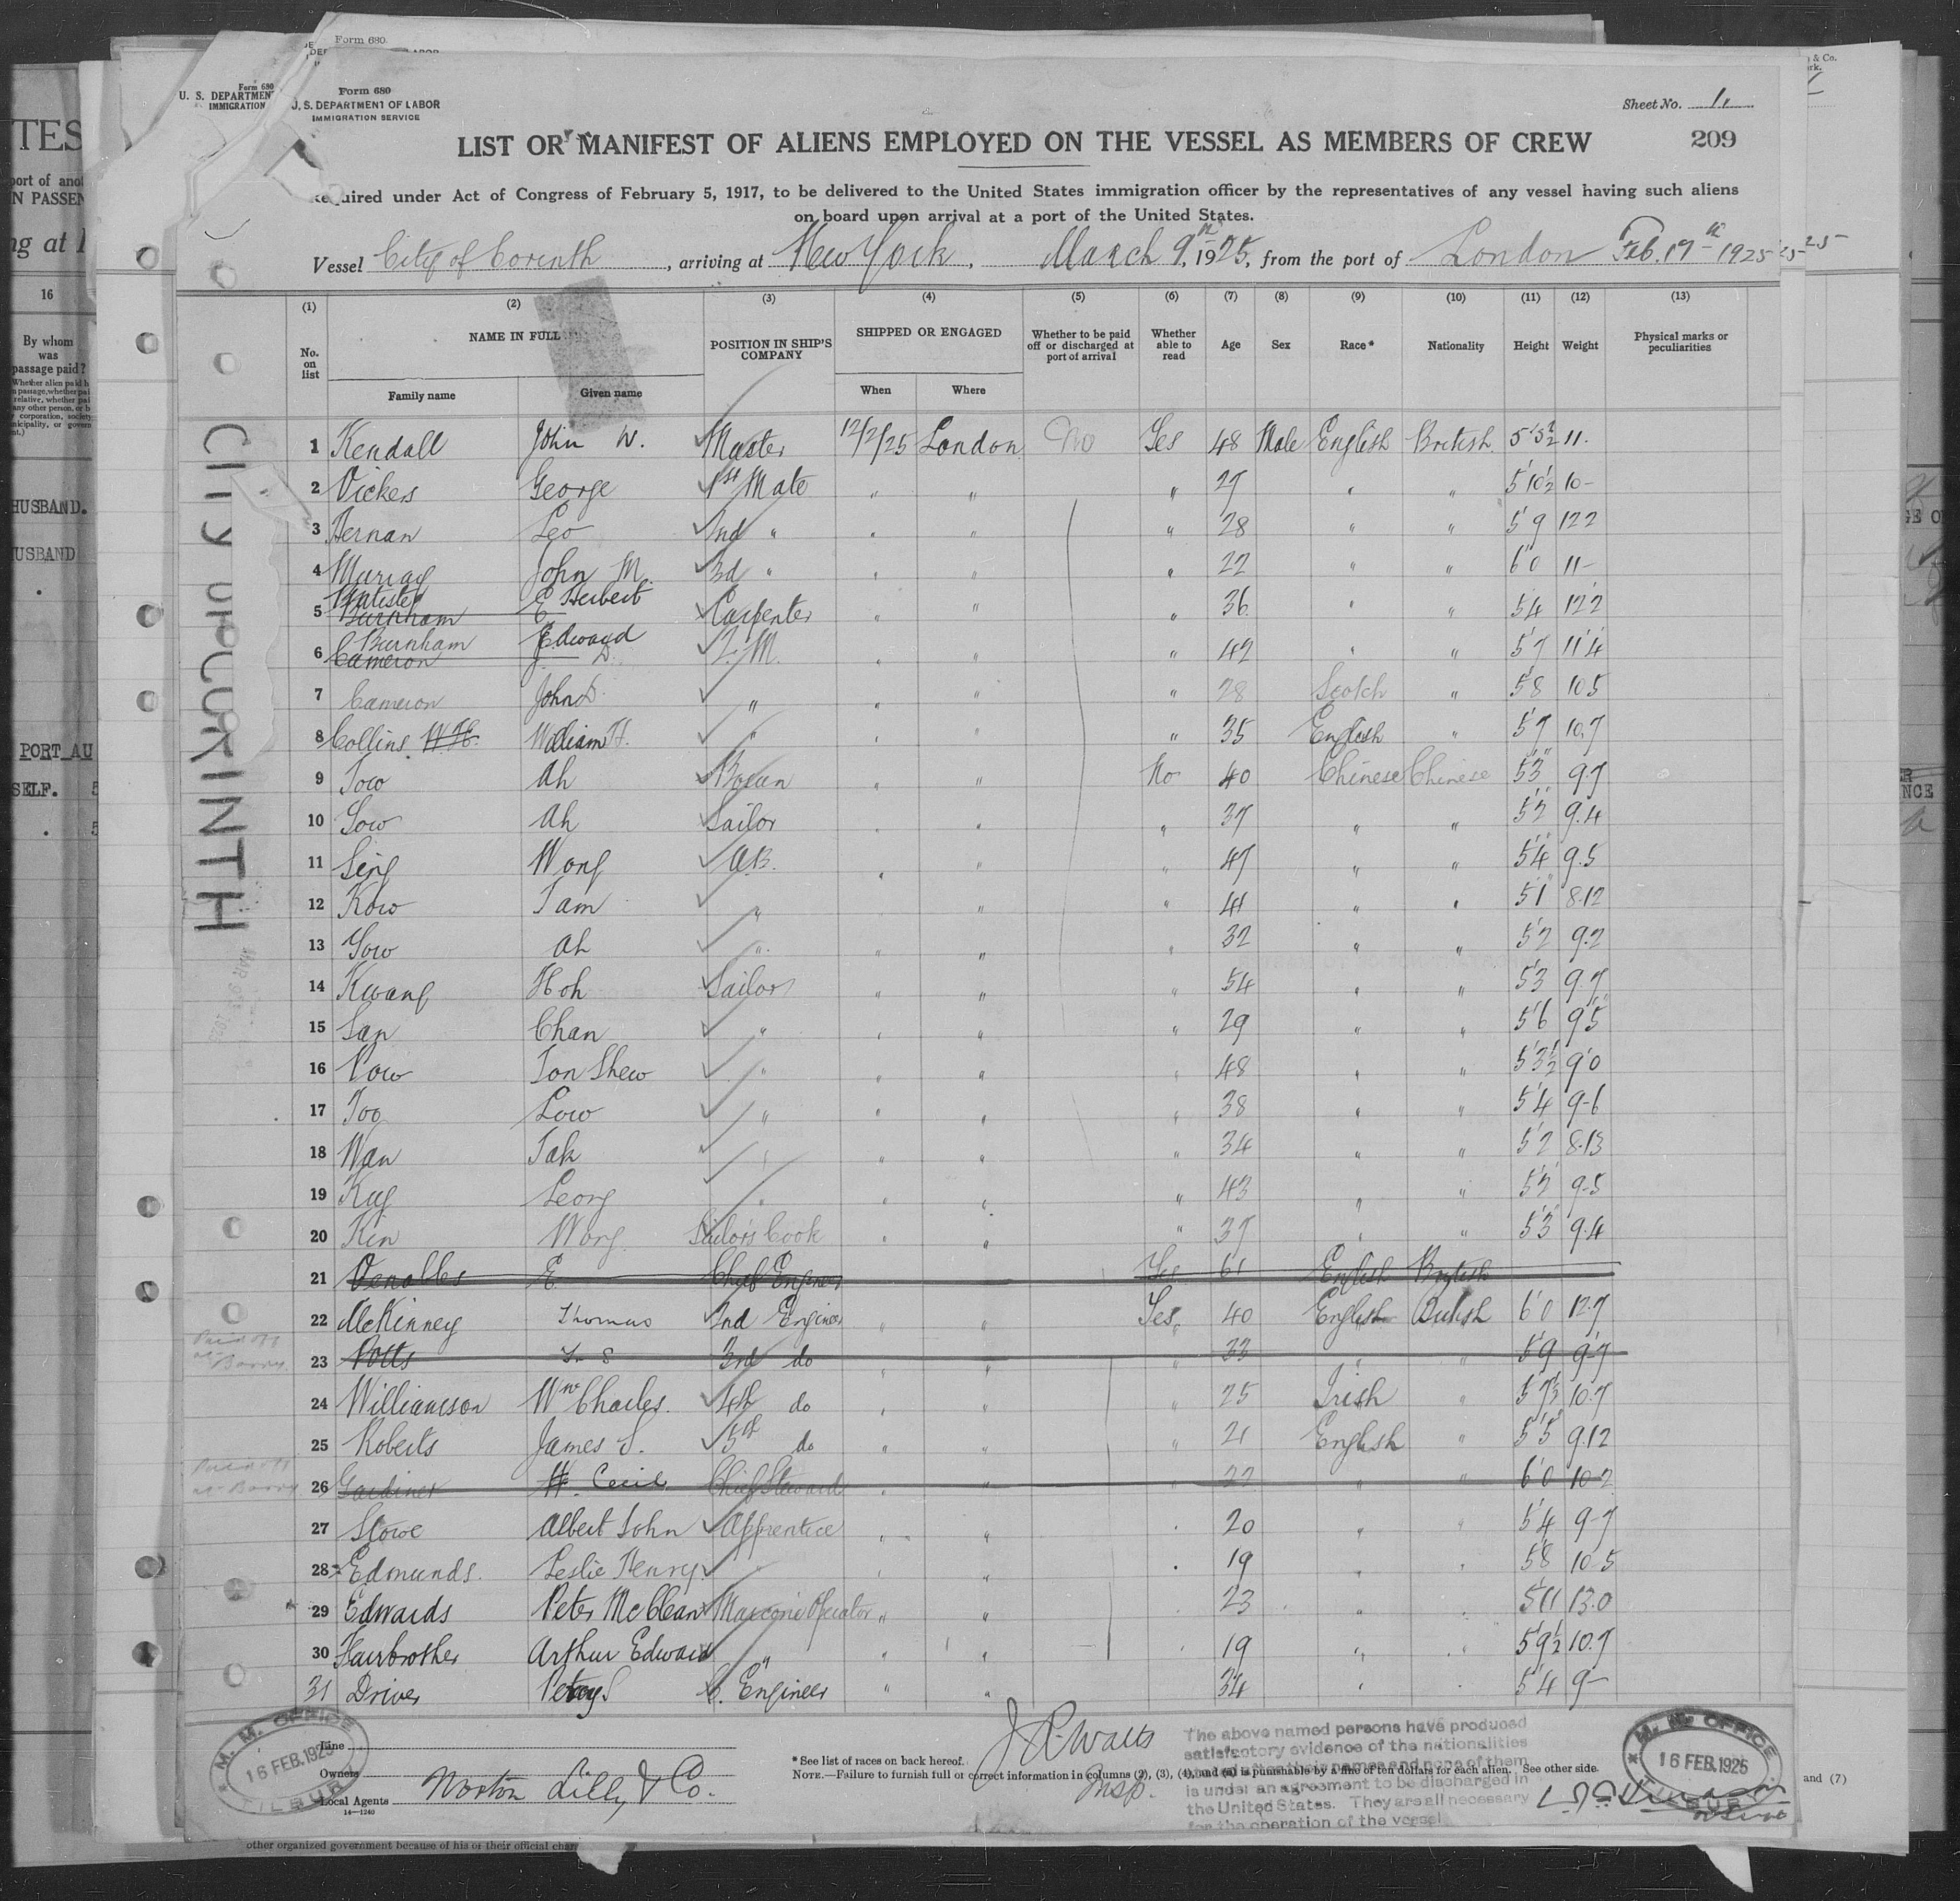 Form 680
U. S. DEPARTMENT OF LABOR
IMMIGRATION SERVICE
Sheet No. 1.
LIST OR MANIFEST OF ALIENS EMPLOYED ON THE VESSEL AS MEMBERS OF CREW
209
Required under Act of Congress of February 5, 1917, to be delivered to the United States immigration officer by the representatives of any vessel having such aliens
on board upon arrival at a port of the United States.
Vessel City of Corinth, arriving at New York, March 9th, 1925, from the port of London Feb. 17th 1925
(1) (2) (3) (4) (5) (6) (7) (8) (9) (10) (11) (12) (13)
No. on list NAME IN FULL POSITION IN SHIP'S COMPANY SHIPPED OR ENGAGED Whether to be paid off or discharged at port of arrival Whether able to read Age Sex Race* Nationality Height Weight Physical marks or peculiarities
Family name Given name When Where
1 Kendall John W. Master 12/2/25 London No Yes 48 Male English British 5'5½ 11.
2 Vickers George 1st Mate " " " 27 " " 5'10½ 10-
3 Hernan Leo 2nd " " " " 28 " " 5'9 122
4 Murray John M. 3rd " " " " 22 " " 6'0 11-
5 Burnham E. Herbert Carpenter " " " 36 " " 5'4 12'2
6 Burnham Cameron Edward J. D. Q.M. " " " 42 " " 5'7 11'4
7 Cameron John D. " " " " 28 Scotch " 5'8 10'5
8 Collins W H. William H. " " " " 35 English " 5'7 10.7
9 Tow Ah Bosun " " No 40 Chinese Chinese 5'3" 9.7
10 Sow Ah Sailor " " " 37 " " 5'2" 9.4
11 Sing Wong A.B. " " " 47 " " 5'4" 9.5
12 Kow Tam " " " 41 " " 5'1" 8.12
13 Yow Ah " " " " 32 " " 5'2 9.2
14 Kwang Hoh Sailor " " " 54 " " 5'3 9.7
15 San Chan " " " " 29 " " 5'6 9'5
16 Pow Ton Shew " " " " 48 " " 5'3½ 9'0
17 Too Low " " " " 38 " " 5'4 9-6
18 Wan Tak " " " " 34 " " 5'2 8.13
19 Kay Leong " " " " 43 " " 5'2 9-5
20 Kin Wong Sailor's Cook " " " 37 " " 5'3 9.4
21 Venables E. Chief Engineer Yes 61 English British
22 McKinney Thomas 2nd Engineer " " Yes 40 English British 6'0 12.7
Paid off at Barry
23 Potts 3rd do " " " 33 " " 5'9 9-7
24 Williamson Wm Charles. 4th do " " " 25 Irish " 5'7½ 10.7
25 Roberts James S. 5th do " " " 21 English " 5'5 9.12
Paid off at Barry
26 Gardiner H. Cecil Chief Steward " " " 22 " " 6'0 10-2
27 Stowe Albert John Apprentice " " " 20 " " 5'4 9-7
28 Edmunds. Leslie Henry. " " " " 19 " " 5'8 10-5
29 Edwards Peter McClean Marconi Operator " " " 23 " " 5'11 13.0
30 Fairbrother Arthur Edward " " " " 19 " " 5'9½ 10.7
31 Driver Percy S C. Engineer " " 34 " " 5'4 9-
CITY OF CORINTH
Line
Owners
Local Agents Norton Lilly & Co.
14—1240
*See list of races on back hereof.
NOTE.—Failure to furnish full or correct information in columns (2), (3), (4), and (6) is punishable by a fine of ten dollars for each alien. See other side.
J. R. Watts
Insp.
The above named persons have produced
satisfactory evidence of the nationalities
stated after their names and none of them
is under an agreement to be discharged in
the United States. They are all necessary
for the operation of the vessel
M. M. OFFICE
16 FEB. 1925
TILBURY
M. M. OFFICE
16 FEB. 1925
TILBURY
and (7)
other organized government because of his or their official char
16
By whom
was
passage paid?
HUSBAND.
HUSBAND
PORT AU
SELF.